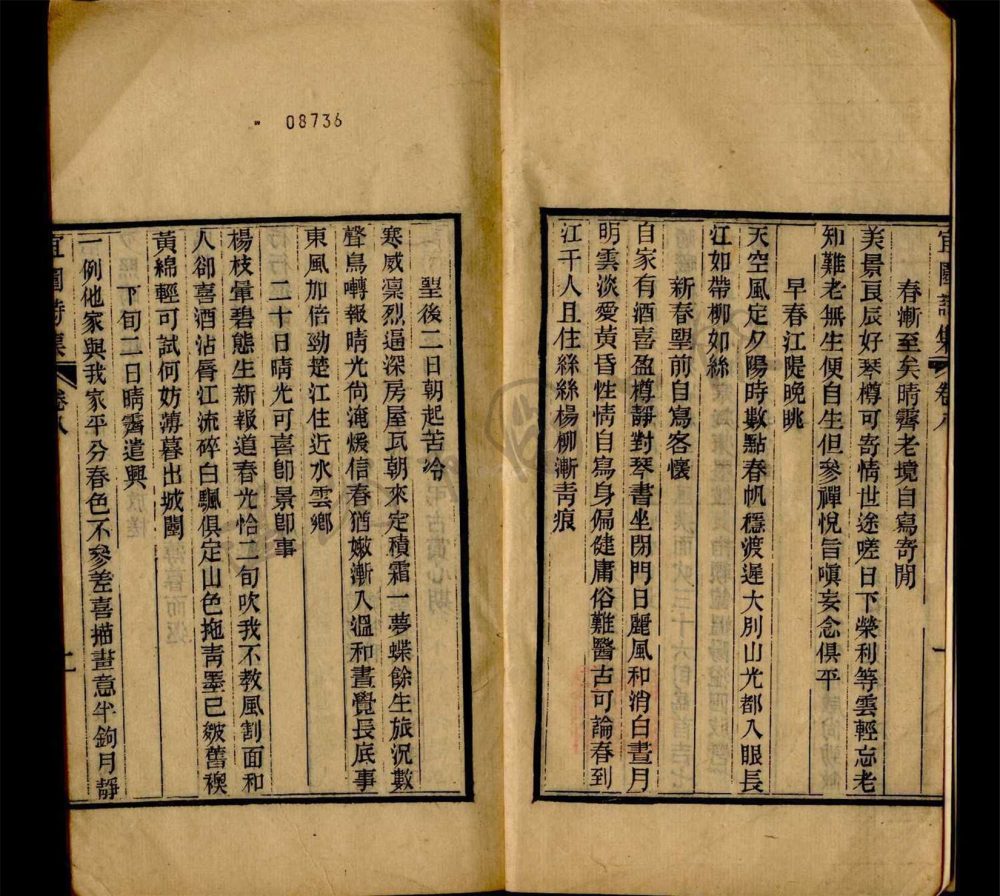 春漸至矣晴霽老境自寫寄閒
美景良辰好琴樽可寄情世途嗟日下榮利等雲輕忘老
知難老無生便自生但參禪悅旨嗔妄念俱平
早春江隄晚眺
天空風定夕陽時數點春帆穩渡遲大別山光都入眼長
江如帶柳如絲
新春朢前自寫客懷
自家有酒喜盈樽靜對琴書坐閉門日麗風和消白晝月
明雲淡愛黃昏性情自寫身偏健庸俗難醫古可論春到
江干人且住絲絲楊柳漸靑痕
宜園詩集
卷八
一
08736
朢後二日朝起苦冷
寒威凛烈逼深房屋瓦朝來定積霜一夢蝶餘生旅況數
聲鳥囀報晴光尙淹煖信春猶嫩漸入溫和晝覺長底事
東風加倍勁楚江住近水雲鄉
二十日晴光可喜卽景卽事
楊枝暈碧態生新報道春光恰二旬吹我不教風割面和
人卻喜酒沾脣江流碎白颿俱定山色拖靑墨已皴舊襖
黃綿輕可試何妨薄暮出城闉
下旬二日晴霽遣興
一例他家與我家平分春色不參差喜描畫意半鉤月靜
宜園詩集
卷八